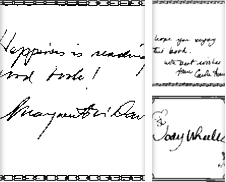 Happiness is reading
good book!
Margaret
hope you enjoy
this book.
with best wishes
from
Jody Wheeler